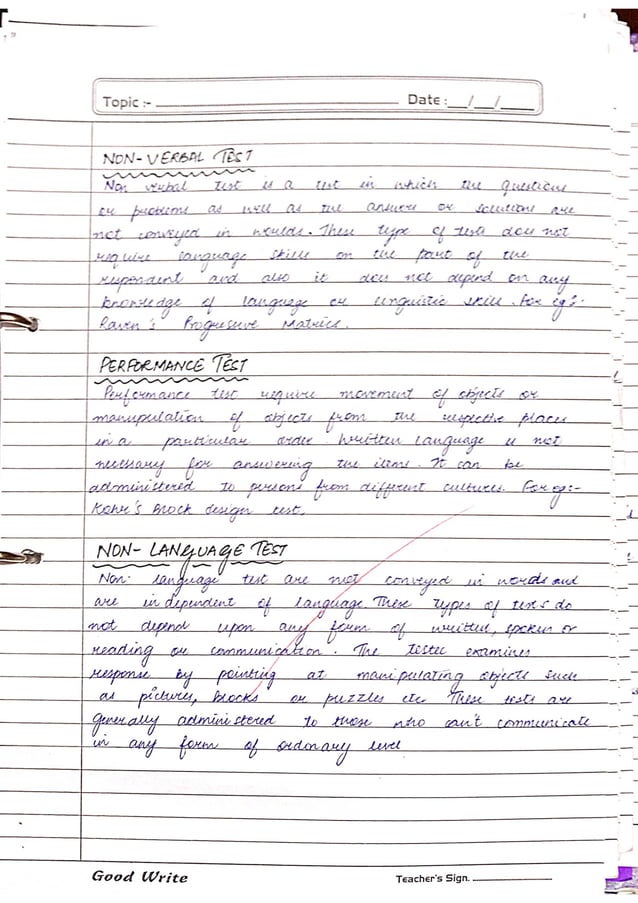 Topic :- Date : __/__/____
NON-VERBAL TEST
Non verbal test is a test in which the questions
or problems as well as the answer or solutions are
not conveyed in words. These type of tests does not
require language skills on the part of the
respondent and also it does not depend on any
knowledge of language or linguistic skill. For eg:-
Raven's Progressive Matrics.
PERFORMANCE TEST
Performance test require movement of objects or
manupulation of objects from the respective places
in a particular order. Written language is not
necessary for answering the items. It can be
administered to persons from different cultures. For eg:-
Kohr's Block design test.
NON-LANGUAGE TEST
Non- language test are not conveyed in words and
are independent of language. These types of tests do
not depend upon any form of written, spoken or
reading or communication. The tester examines
response by pointing at manipulating objects such
as pictures, blocks or puzzles etc. These tests are
generally administered to those who can't communicate
in any form of ordonary level
Good Write Teacher's Sign.